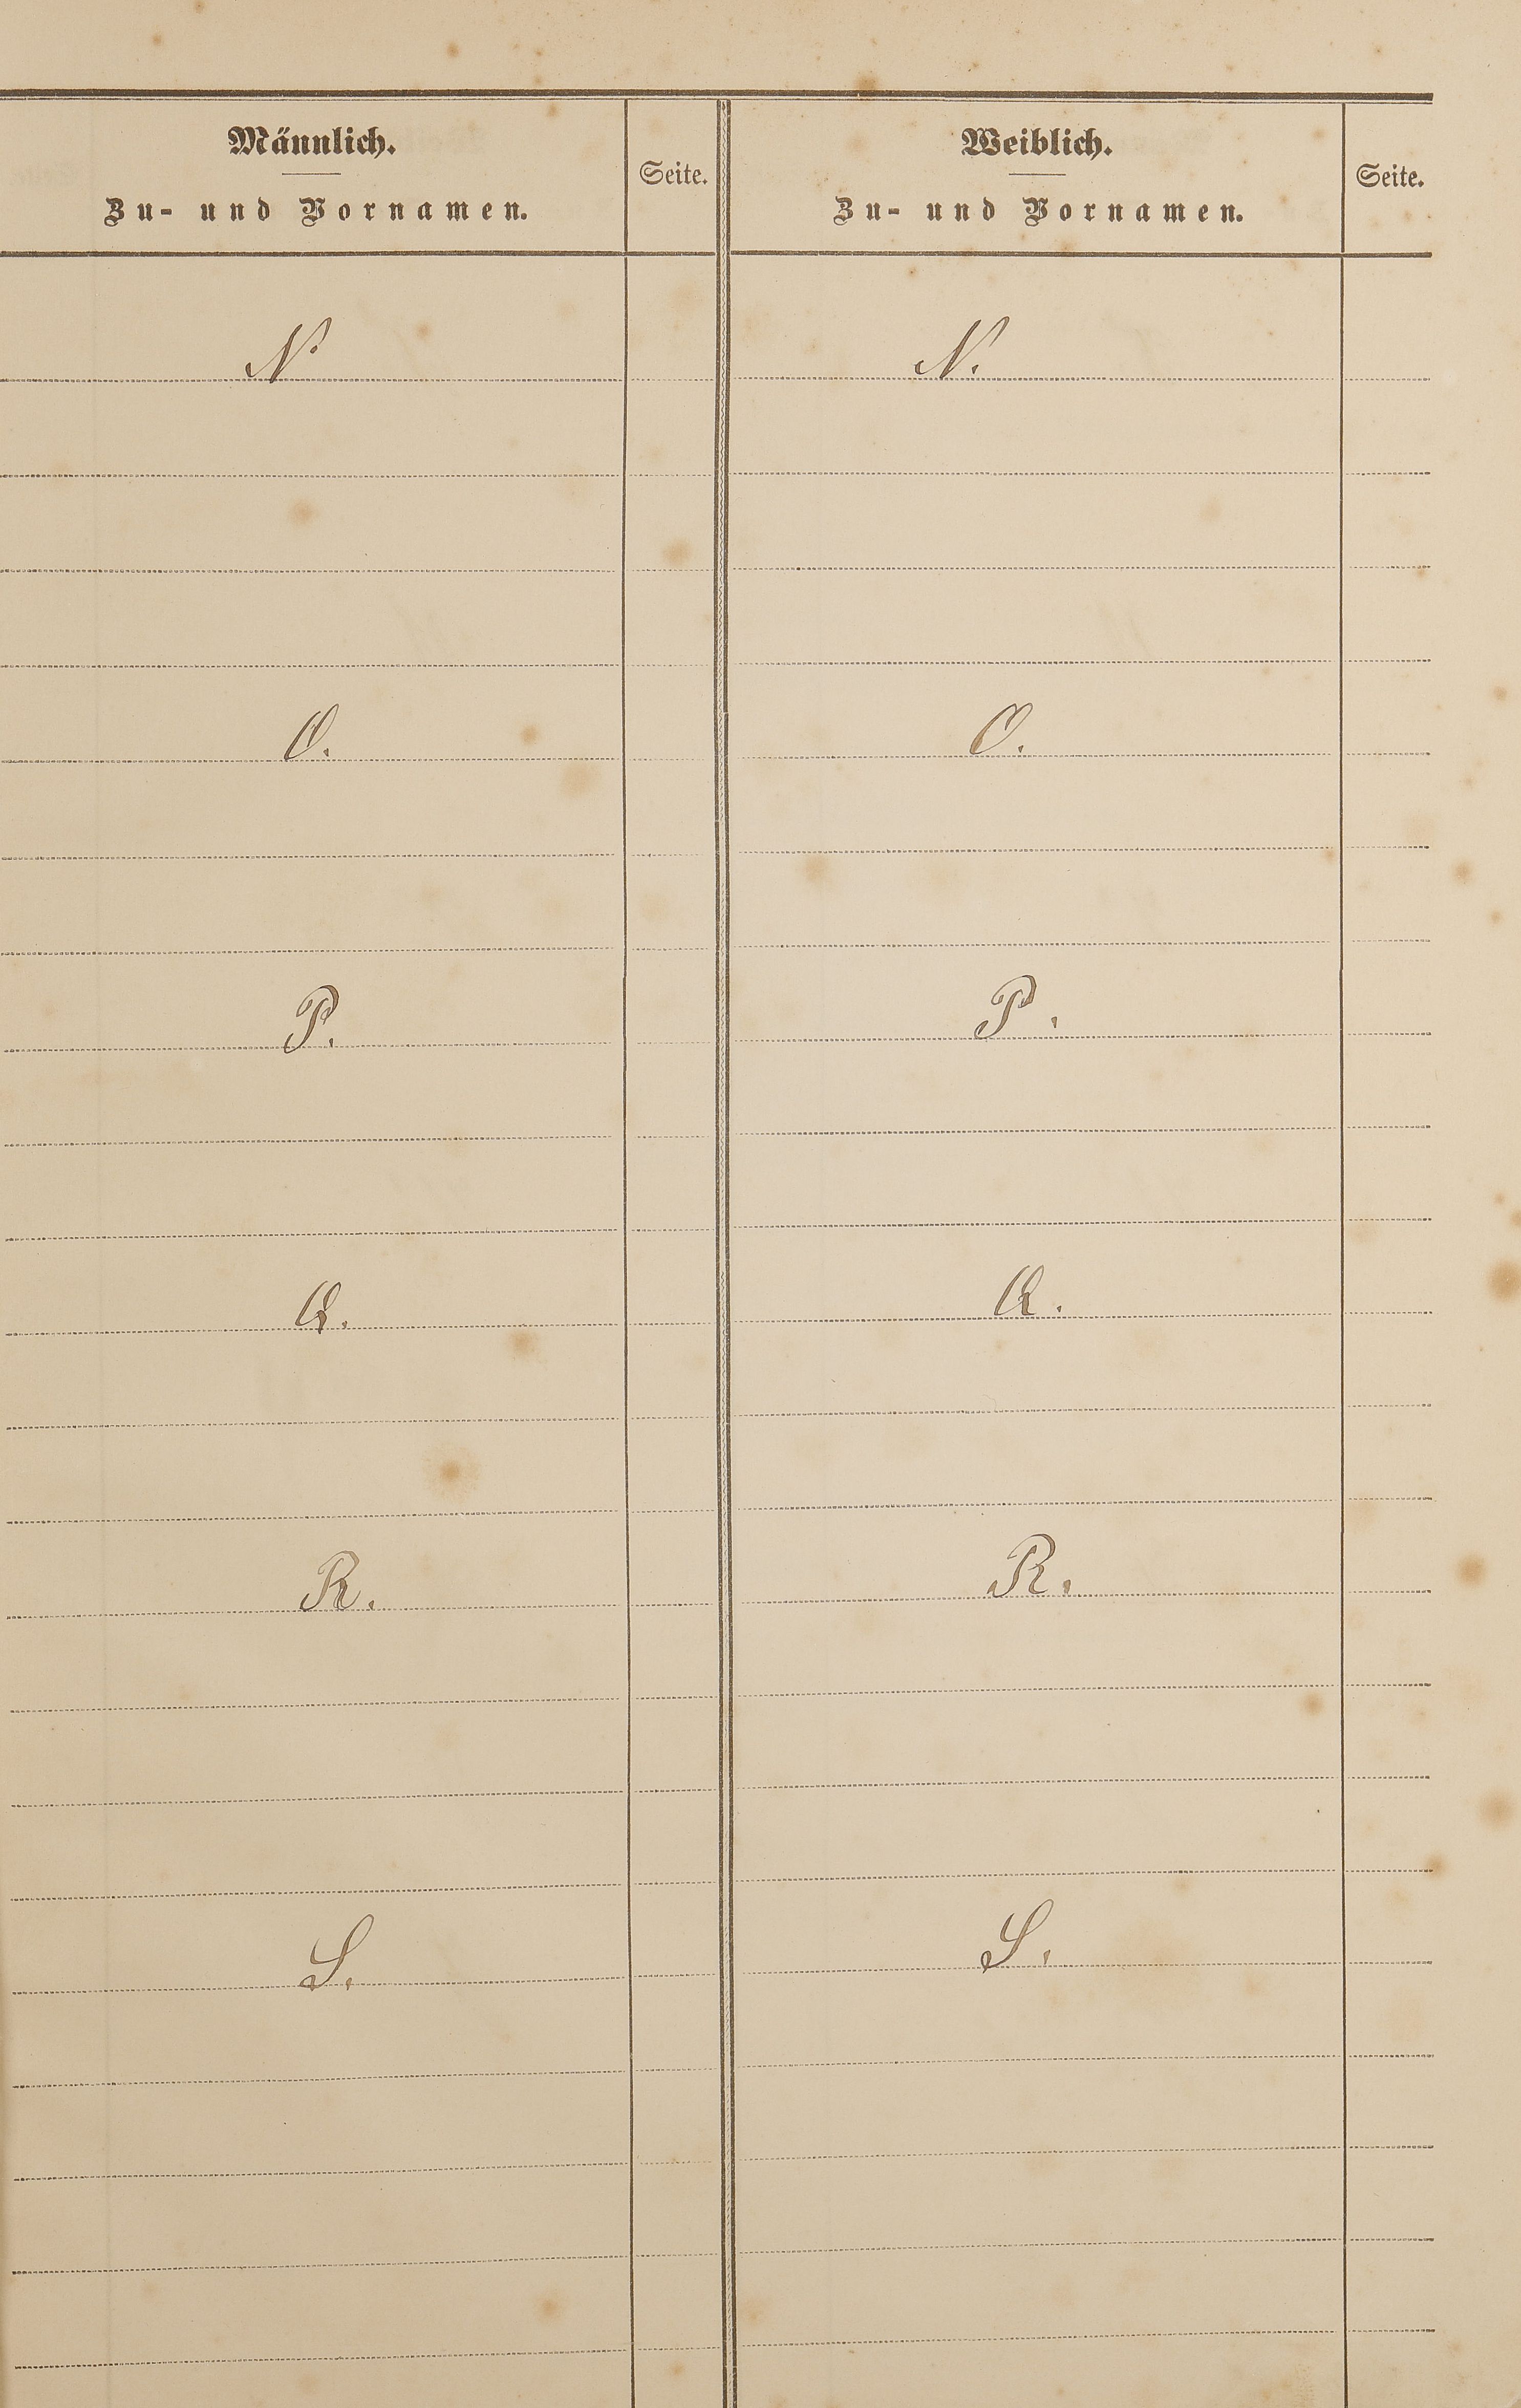 Männlich.
Zu- und Vornamen.
Seite.
Weiblich.
Zu- und Vornamen.
Seite.
N. N.
O. O.
P. P.
Q. Q.
R. R.
S. S.